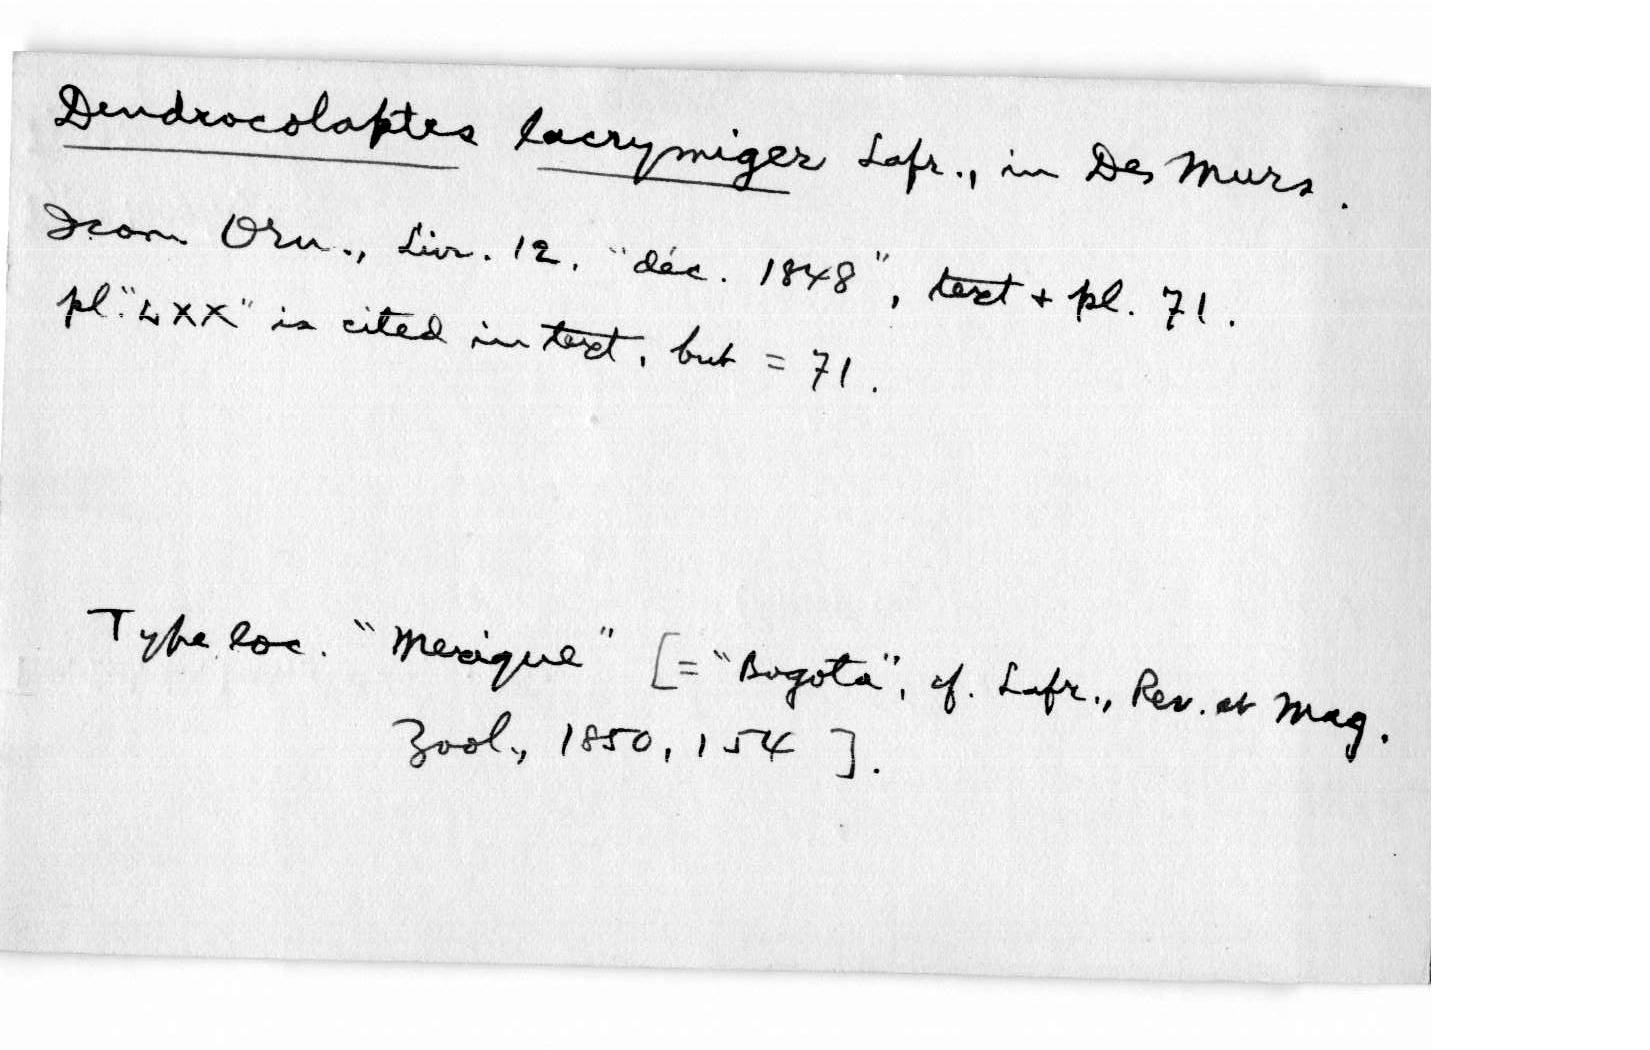 Dendrocolaptes lacrymiger Lafr., in Des Murs.
Icon Orn., Livr. 12, "déc. 1848", text + pl. 71.
pl. "LXX" is cited in text, but = 71.
Type loc. "Mexique" [= "Bogota", cf. Lafr., Rev. et Mag.
Zool., 1850, 154].